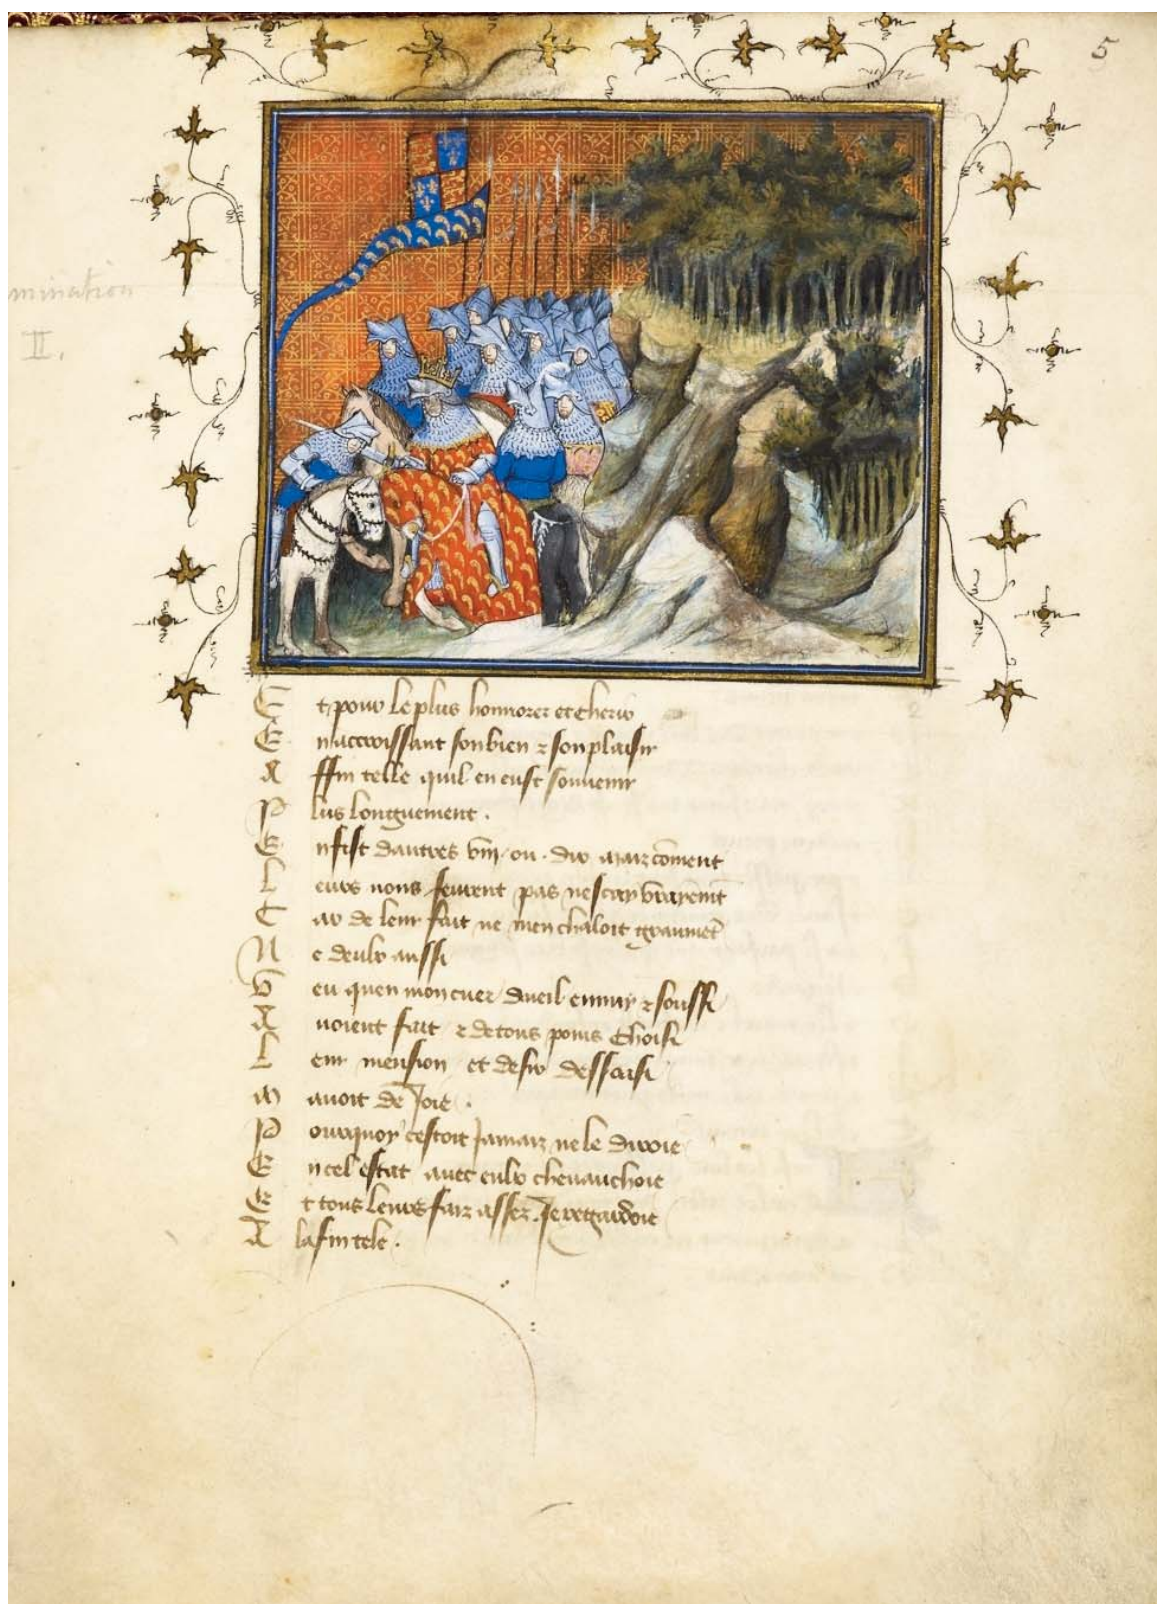 5
mination
II.
Et pour le plus honnorer et cherir
En accroissant son bien ⁊ son plaisir
Affin telle quil en eust souvenir
Plus longuement .
En fist dautres viii ou dix maiz coment
Leurs nons feurent pas ne scay vrayemẽt
Car de leur fait ne men chaloit graumẽt
Ne deulx aussi
Veu quen mon cuer dueil ennuy ⁊ soussi
Avoient fait ⁊ de tous poins choisi
Leur mension et desir dessaisi
Mavoit de Joie .
Pourquoy cestoit Jamaiz ne le diroie
En cel estat avec eulx chevauchoie
Et tous leurs faiz assez Je regardoie
A la fin tele .